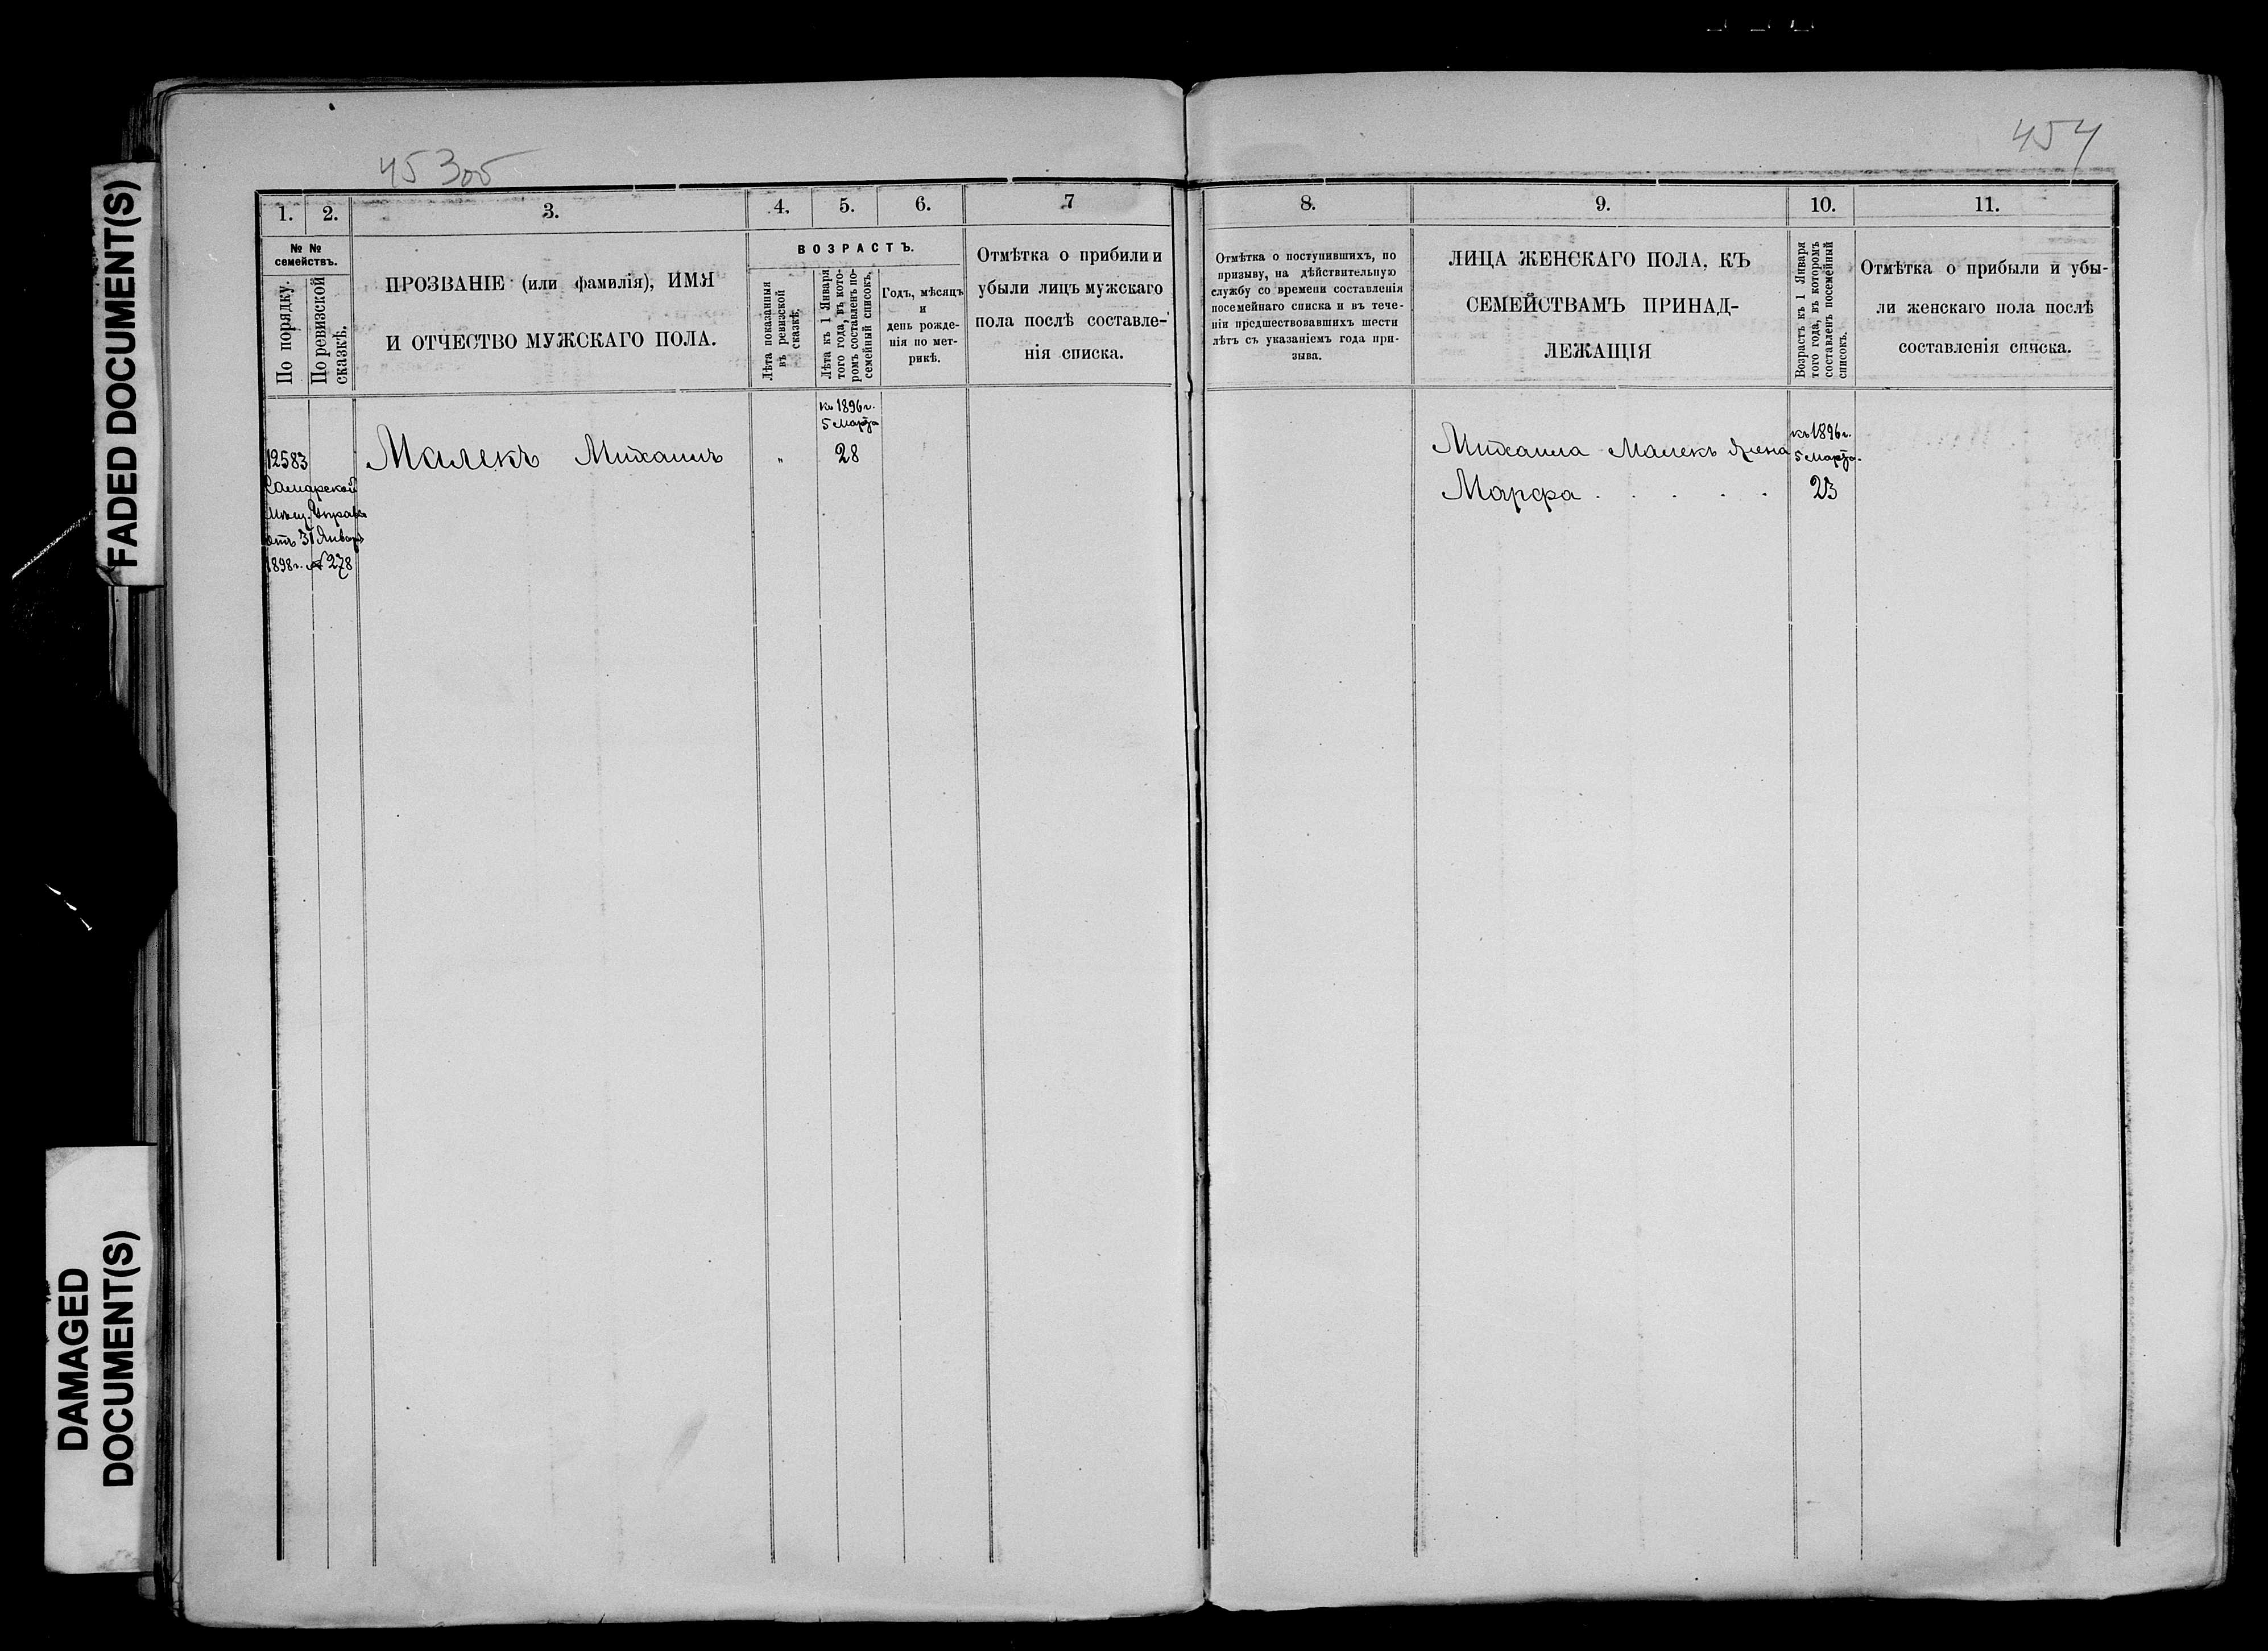 FADED DOCUMENT(S)
DAMAGED
DOCUMENT(S)
453об
1. 2. 3. 4. 5. 6. 7
№ №
семействъ.
По порядку.
По ревизской
сказкѣ.
ПРОЗВАНІЕ (или фамилія), ИМЯ
И ОТЧЕСТВО МУЖСКАГО ПОЛА.
ВОЗРАСТЪ.
Лѣта показанныя
въ ревизской
сказкѣ.
Лѣта къ 1 Января
того года, въ кото-
ромъ составленъ по-
семейный списокъ.
Годъ, мѣсяцъ
и
день рожде-
нія по мет-
рикѣ.
Отмѣтка о прибили и
убыли лицъ мужскаго
пола послѣ составле-
нія списка.
къ 1896 г.
5 Марта
12583 Малекъ Михаилъ " 28
Самарской
Мѣщ. Управы
отъ 31 Января
1898 г. № 278
454
8. 9. 10. 11.
Отмѣтка о поступившихъ, по
призыву, на дѣйствительную
службу со времени составленія
посемейнаго списка и въ тече-
ніи предшествовавшихъ шести
лѣтъ съ указаніемъ года при-
зыва.
ЛИЦА ЖЕНСКАГО ПОЛА, КЪ
СЕМЕЙСТВАМЪ ПРИНАД-
ЛЕЖАЩІЯ
Возрастъ къ 1 Января
того года, въ которомъ
составленъ посемейный
списокъ.
Отмѣтка о прибыли и убы-
ли женскаго пола послѣ
составленія списка.
къ 1896 г.
Михаила Малекъ жена 5 Марта.
Марфа . . . . . 23